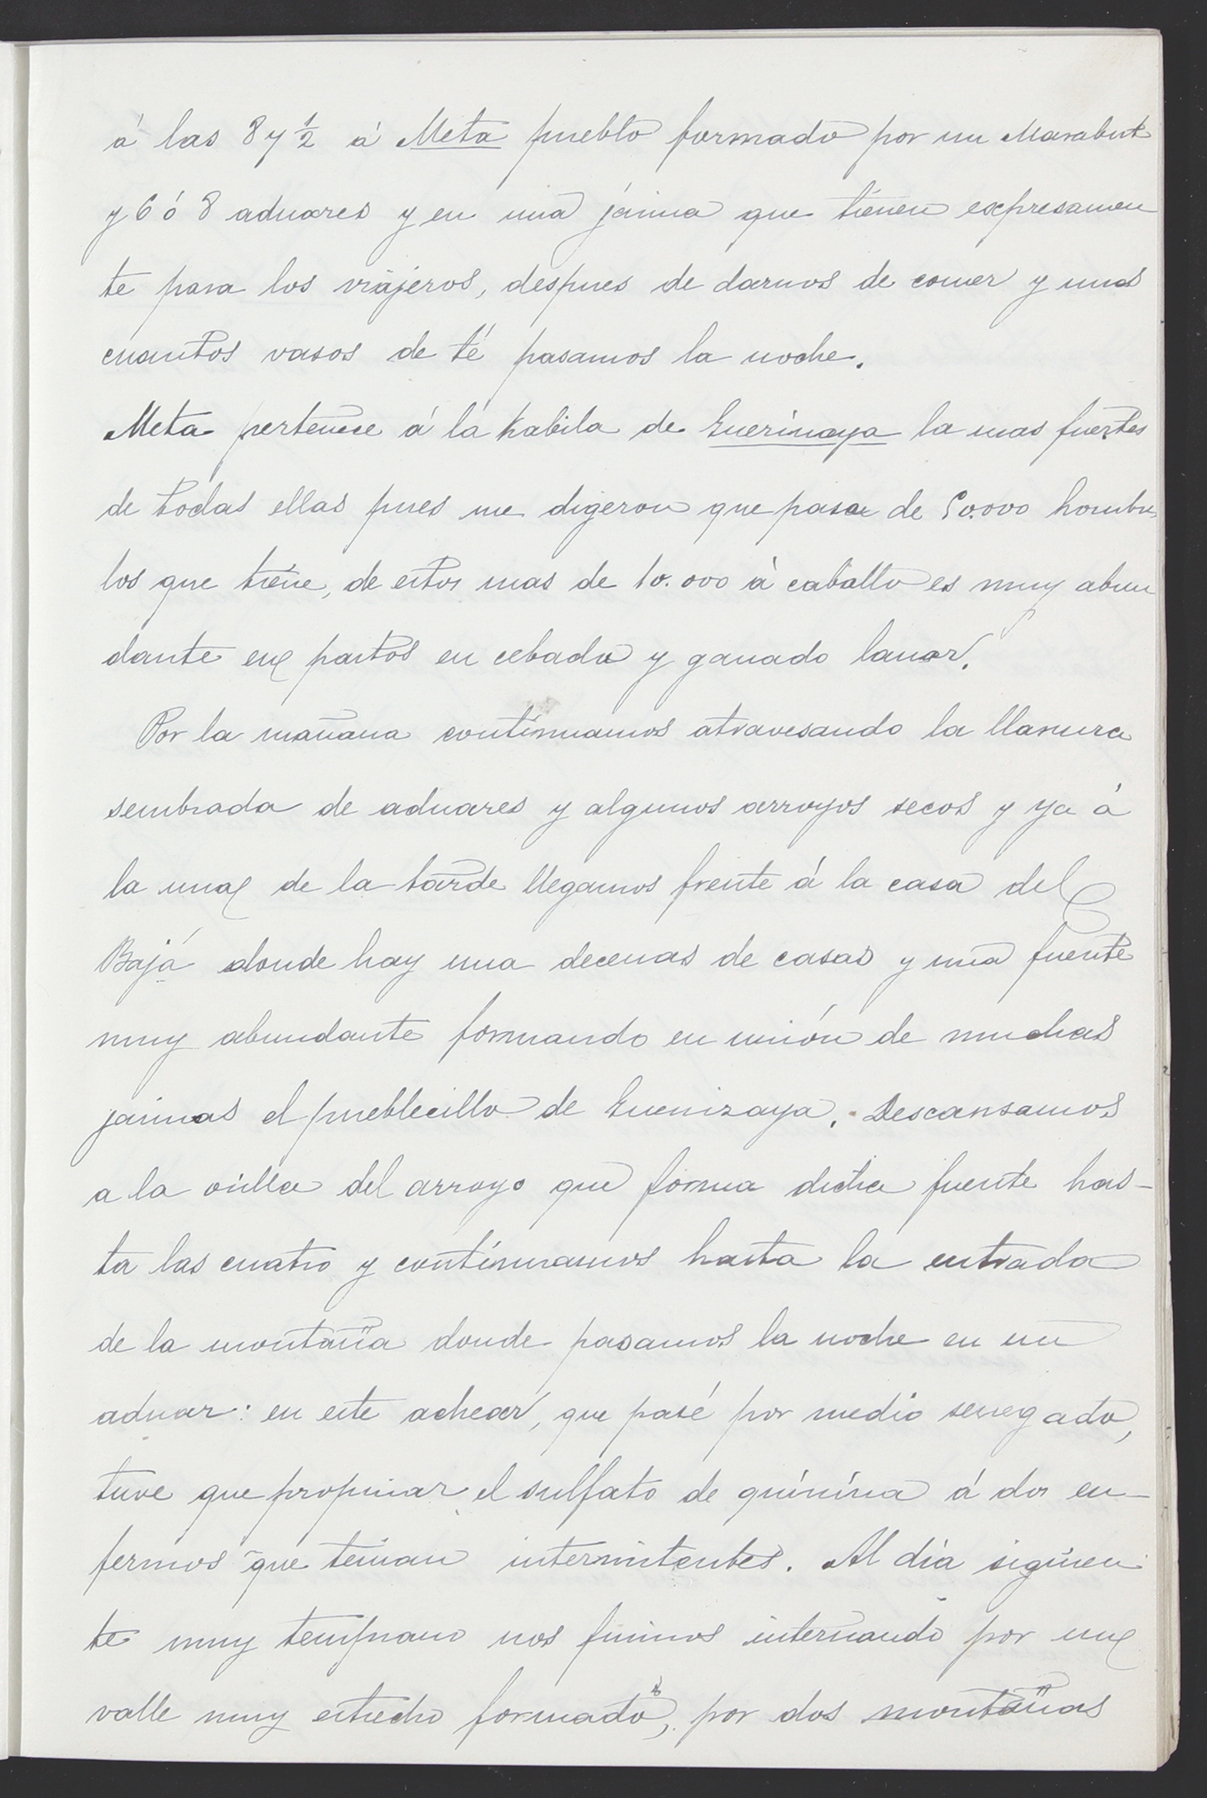 á las 8 y ½ á Meta pueblo formado por un Marabut
y 6 ó 8 aduares y en una jáima que tienen expresamen
te para los viajeros, despues de darnos de comer y unos
cuantos vasos de té pasamos la noche.
Meta pertenece á la Kabila de Guerinaya la mas fuertes
de todas ellas pues me digeron que pasa de 50.000 hombres
los que tiene, de estos mas de 10.000 á caballo es muy abun
dante en pastos en cebada y ganado lanar.
Por la mañana continuamos atravesando la llanura
sembrada de aduares y algunos arroyos secos y ya á
la una de la tarde llegamos frente á la casa del
Bajá donde hay una decenas de casas y una fuente
muy abundante formando en unión de muchas
jaimas el pueblecillo de Guenizaya. Descansamos
a la orilla del arroyo que forma dicha fuente has-
ta las cuatro y continuamos hasta la entrada
de la montaña donde pasamos la noche en un
aduar: en este achear, que pasé por medio renegado,
tuve que propinar el sulfato de quinina á dos en-
fermos que tenian intermitentes. Al dia siguien
te muy temprano nos fuimos internando por un
valle muy estrecho formado, por dos montañas